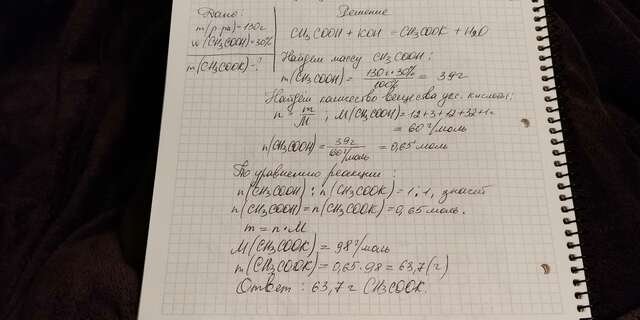 Дано:
m(р-ра)=130г
w(CH3COOH)=30%
m(CH3COOK)-?
Решение
CH3COOH + KOH = CH3COOK + H2O
Найдём массу CH3COOH:
m(CH3COOH) = 130г·30% / 100% = 39г
Найдём количество вещества укс. кислоты:
n = m/M ; M(CH3COOH)=12+3+12+32+1=
= 60 г/моль
n(CH3COOH) = 39г / 60 г/моль = 0,65 моль
По уравнению реакции:
n(CH3COOH) : n(CH3COOK) = 1:1, значит
n(CH3COOH) = n(CH3COOK) = 0,65 моль.
m = n·M
M(CH3COOK) = 98 г/моль
m(CH3COOK) = 0,65·98 = 63,7(г)
Ответ: 63,7 г CH3COOK.